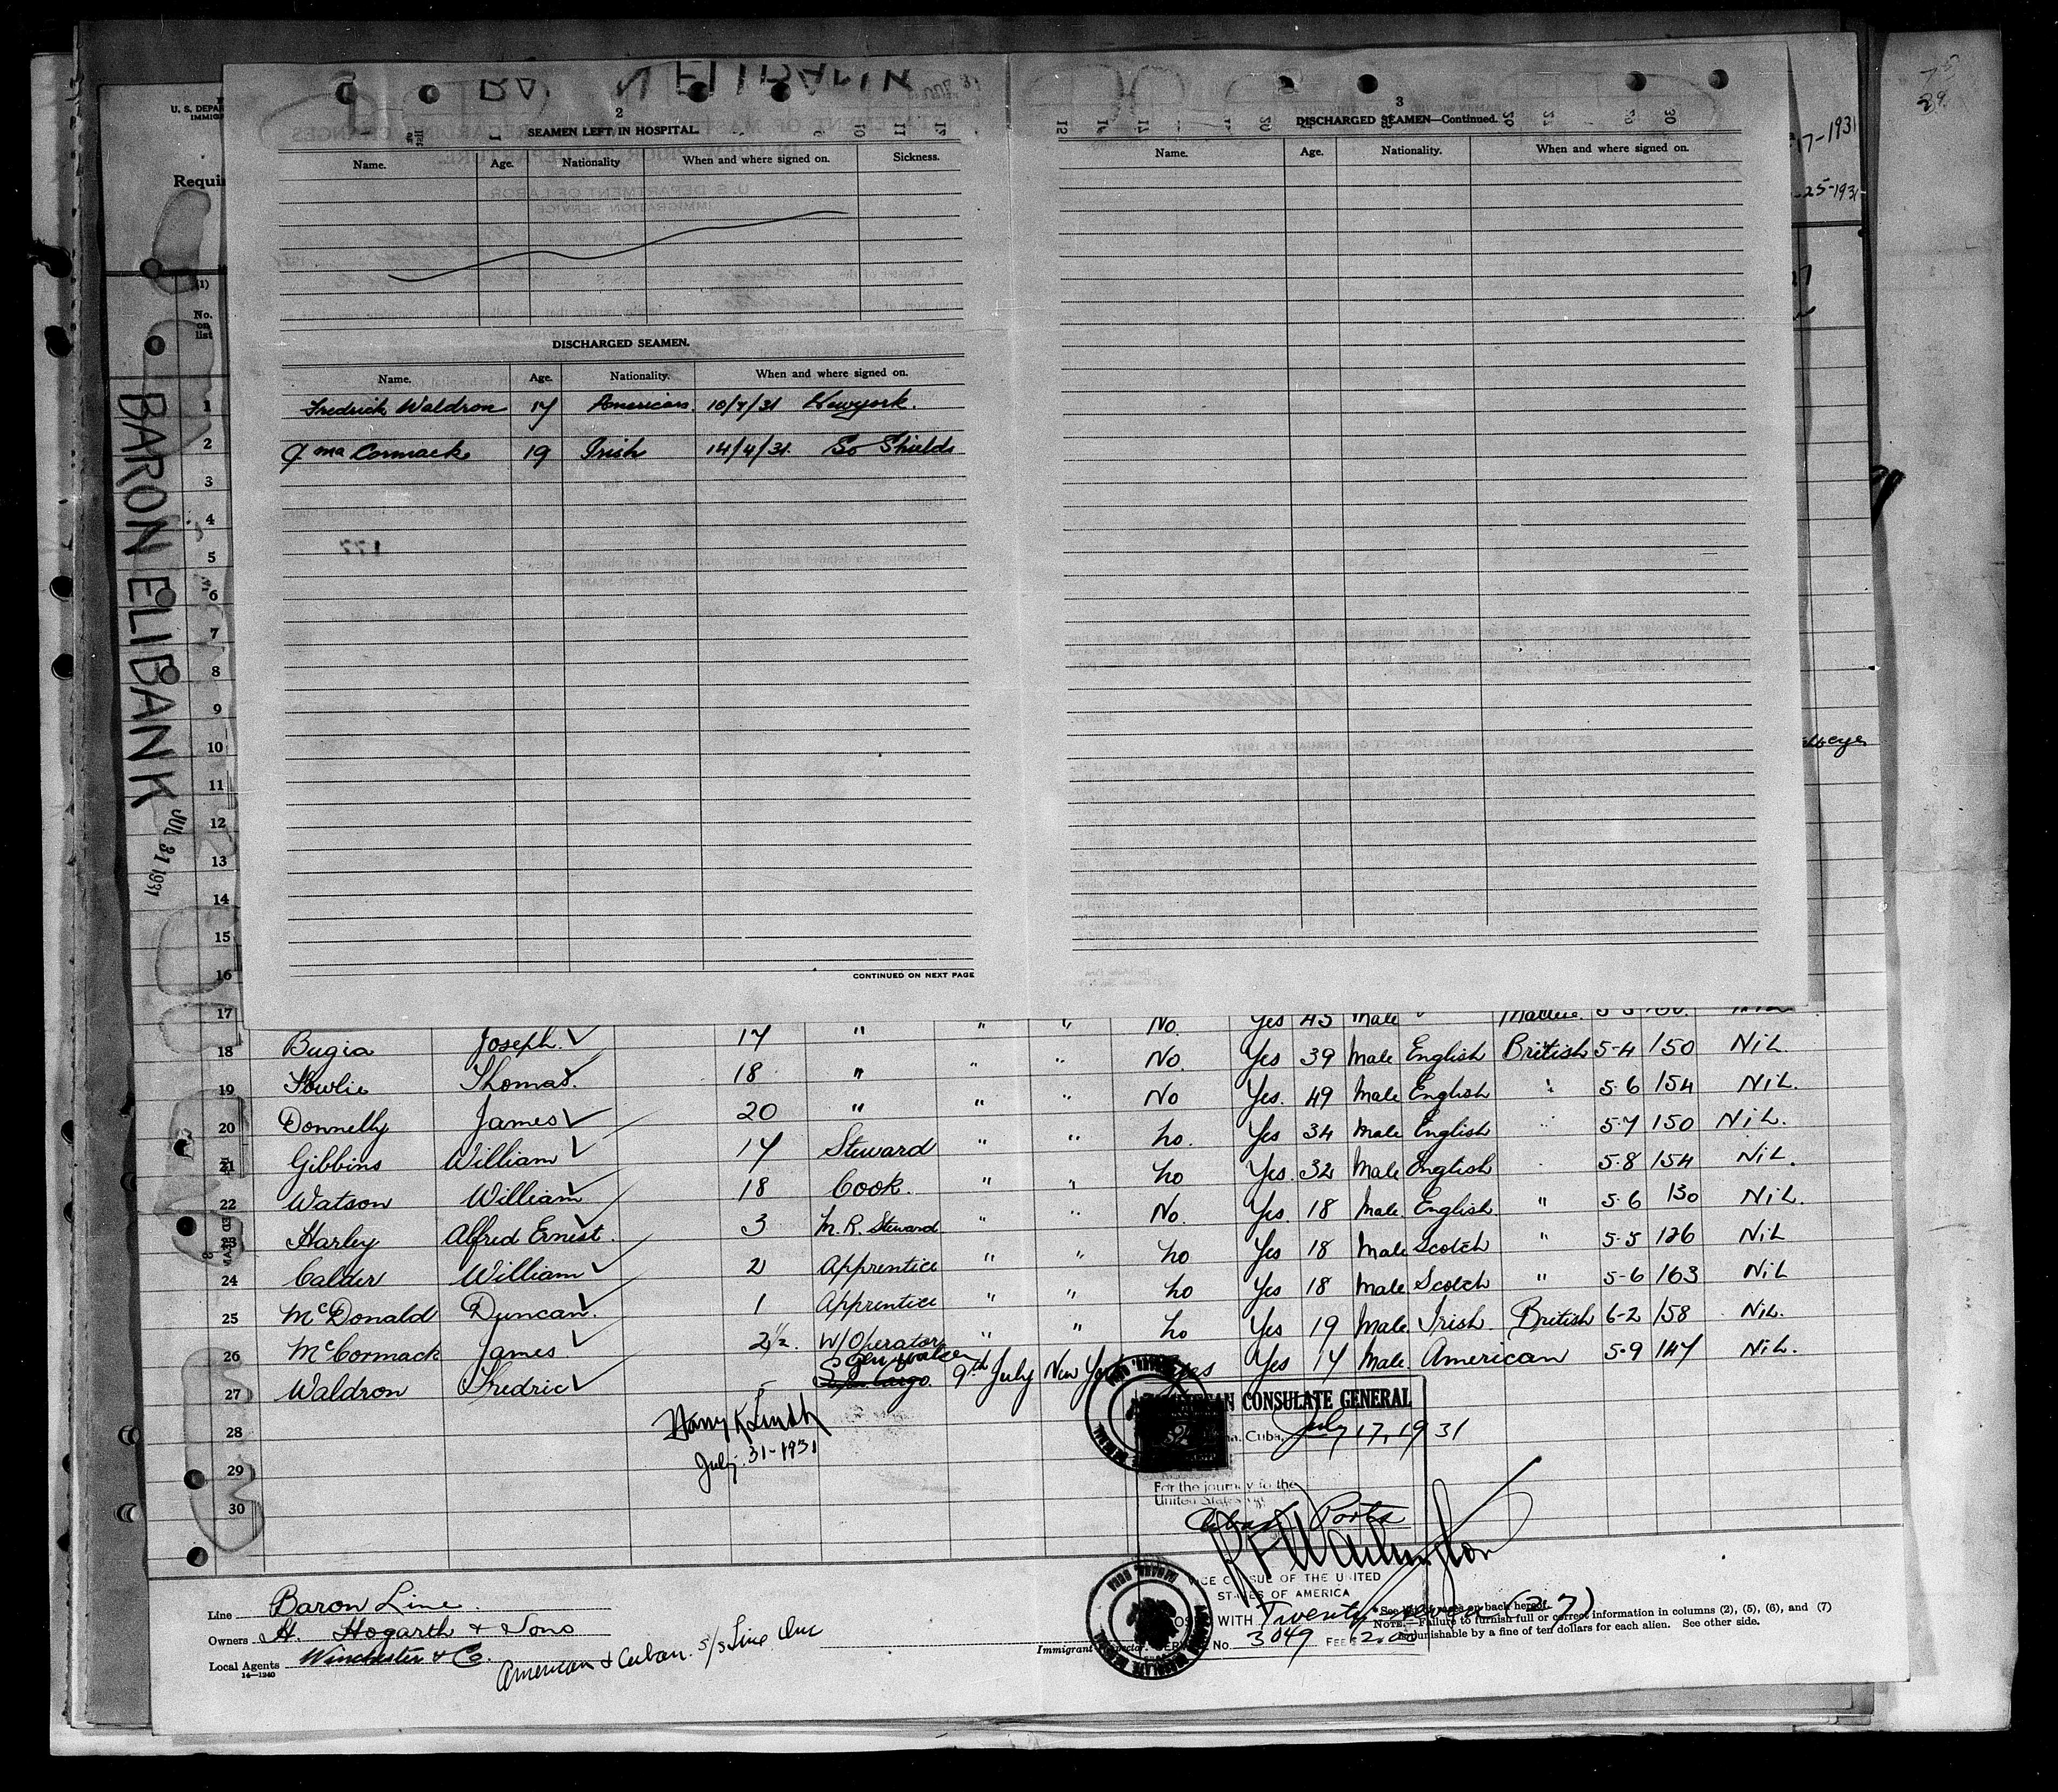 2
SEAMEN LEFT IN HOSPITAL.
Name. Age. Nationality When and where signed on. Sickness.
DISCHARGED SEAMEN.
Name. Age. Nationality. When and where signed on.
Fredrick Waldron 17 American. 10/7/31 Newyork.
J. Ma Cormack 19 Irish 14/4/31. So Shields
CONTINUED ON NEXT PAGE
3
DISCHARGED SEAMEN—Continued.
Name. Age. Nationality. When and where signed on.
U. S. DEPAR
IMMIGR
Requir
(1)
No. on list
BARON ELIBANK
JUL 31 1931
17-1931
25-1931
1
2
3
4
5
6
7
8
9
10
11
12
13
14
15
16
17 No. Yes 45 Male
18 Bugia Joseph. 17 " " " No. Yes 39 Male English British 5-4 150 NiL.
19 Fowlie Thomas. 18 " " " No Yes. 49 Male English " 5.6 154 NiL.
20 Donnelly James 20 " " " No. Yes 34 Male English " 5.7 150 NiL.
21 Gibbins William 17 Steward " " No Yes. 32 Male English 5.8 154 NiL.
22 Watson William 18 Cook. " " No. Yes. 18 Male. English. " 5 6 130 NiL.
23 Harley Alfred Ernest. 3 M.R. Steward " " No Yes 18 Male Scotch " 5.5 126 NiL
24 Calder William 2 Apprentice " " No Yes 18 Male Scotch " 5-6 163 NiL
25 McDonald Duncan. 1 Apprentice " " No Yes 19 Male. Irish British 6-2 158 NiL.
26 McCormack James 2½. W/Operator " " Yes Yes 17 Male. American 5.9 147 NiL.
27 Waldron Fredric 9th July New York
28
29
30
Harry K Smith
July. 31-1931
CONSULATE GENERAL
Cuba, July 17, 1931
For the journey to the
United States via
Cuban Ports
VICE CONSUL OF THE UNITED
STATES OF AMERICA
WITH Twenty seven (27)
No. 3049 FEE $2.00
Line Baron Line.
Owners H. Hogarth & Sons
Local Agents Winchester & Co.
14—1240
American & Cuban S/S Line Inc
Immigrant Inspector.
NOTE.—Failure to furnish full or correct information in columns (2), (5), (6), and (7)
punishable by a fine of ten dollars for each alien. See other side.